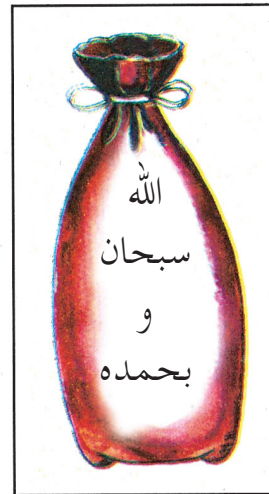 الله
سبحان
و
بحمده